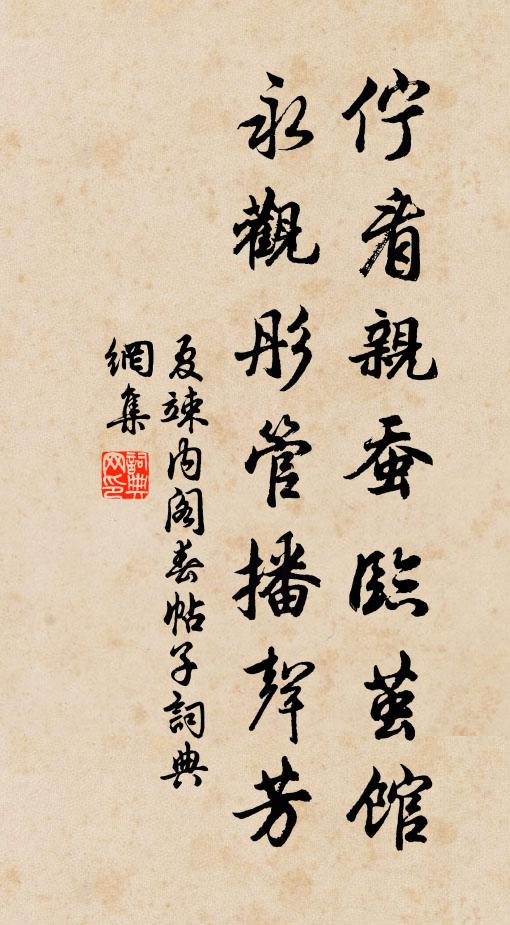 佇看親蚕臨茧館
永觀彤管播聲芳
夏竦内阁春帖子詞典
網集
詞典网印